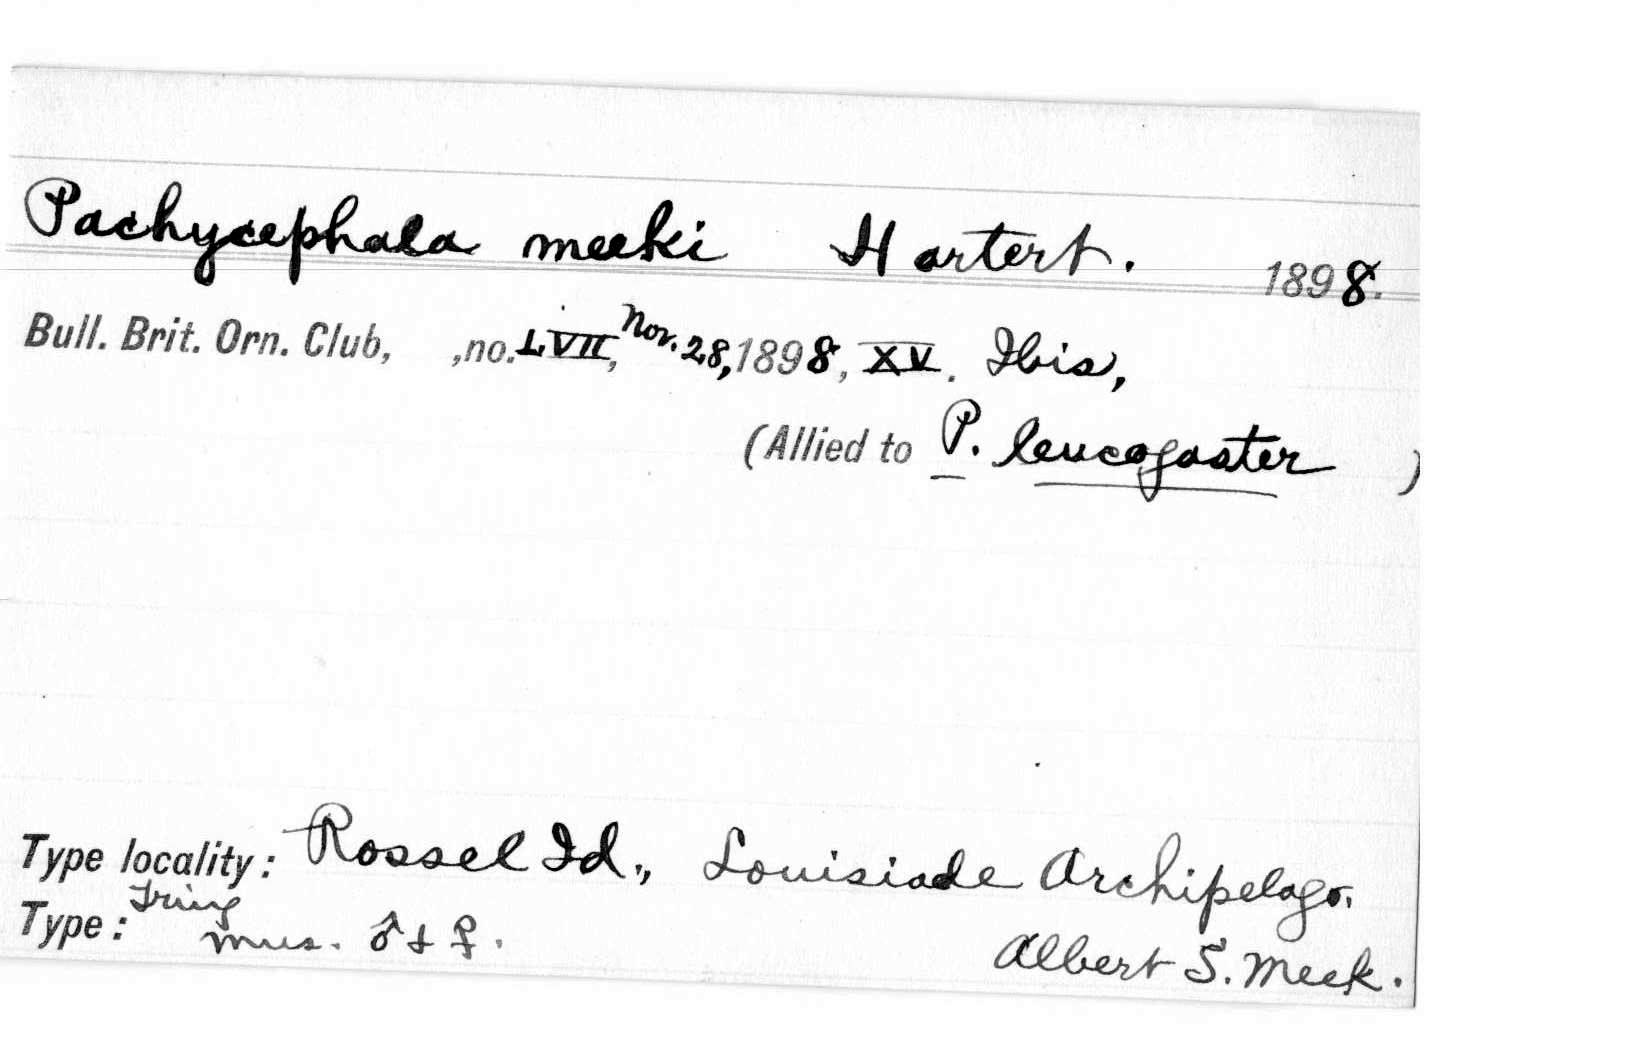 Pachycephala meeki Hartert. 1898.
Bull. Brit. Orn. Club, ,no. LVII, Nov. 28, 1898, XV. Ibis,
(Allied to P. leucogaster )
Type locality: Rossel Id., Louisiade Archipelago.
Type: Tring mus. ♂ + ♀. Albert S. Meek.